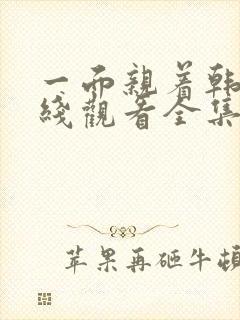 一面親着韩
綫觀看全集
苹果再砸牛顿